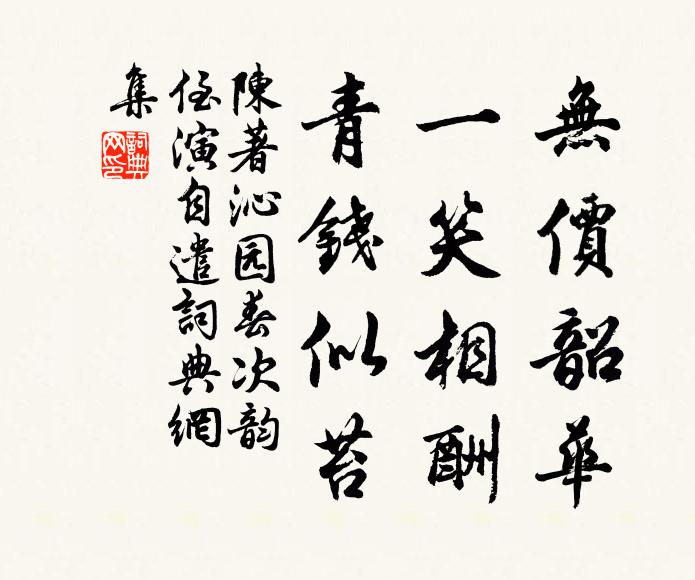 無價韶華
一笑相酬
青錢似苔
陳著沁园春次韵
侄演自遣詞典網
集
詞典網印